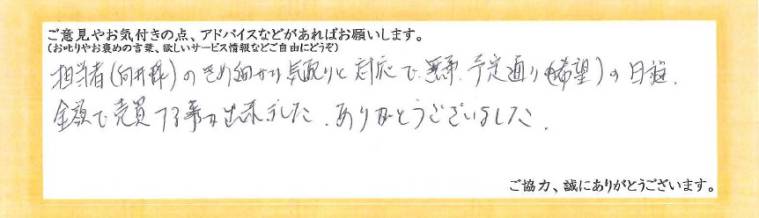 ご意見やお気付きの点、アドバイスなどがあればお願いします。
(お叱りやお褒めの言葉、欲しいサービス情報などご自由にどうぞ)
担当者(向井様)のきめ細かな気配りと対応で無事、予定通り(希望)の日程、
金額で売買する事が出来ました。ありがとうございました。
ご協力、誠にありがとうございます。